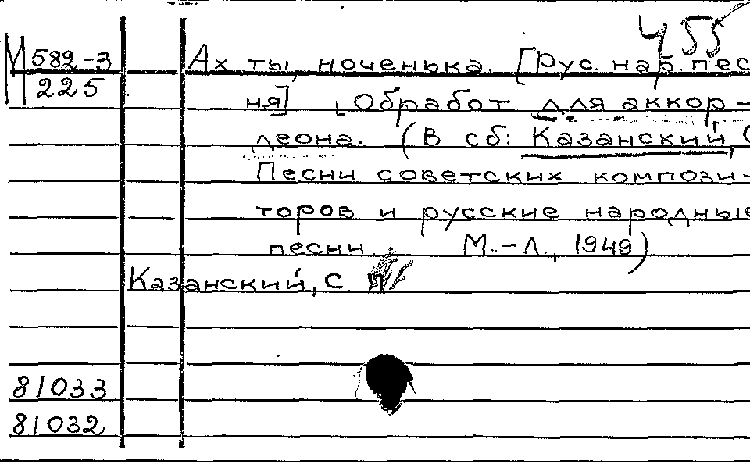 455
М 582-3 Ах ты, ноченька. [Рус. нар. пес
225 ня] [Обработ для аккор-
деона. (В сб: Казанский, С
Песни советских компози-
торов и русские народные
песни М.-Л., 1949)
Казанский, С
81033
81032